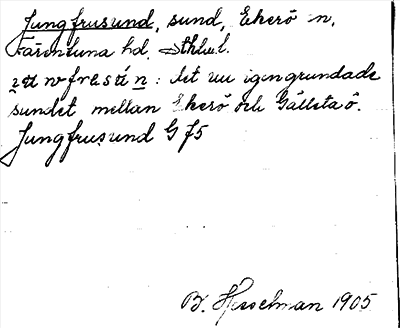 Jungfrusund, sund, Ekerö sn,
Färentuna hd, Sthlm l.
det nu igengrundade
sundet mellan Ekerö och Gällstaö.
Jungfrusund G f5
B. Hesselman 1905